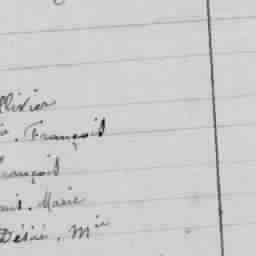 llivier
, François
rançois
, Marie
Désiré, Mie